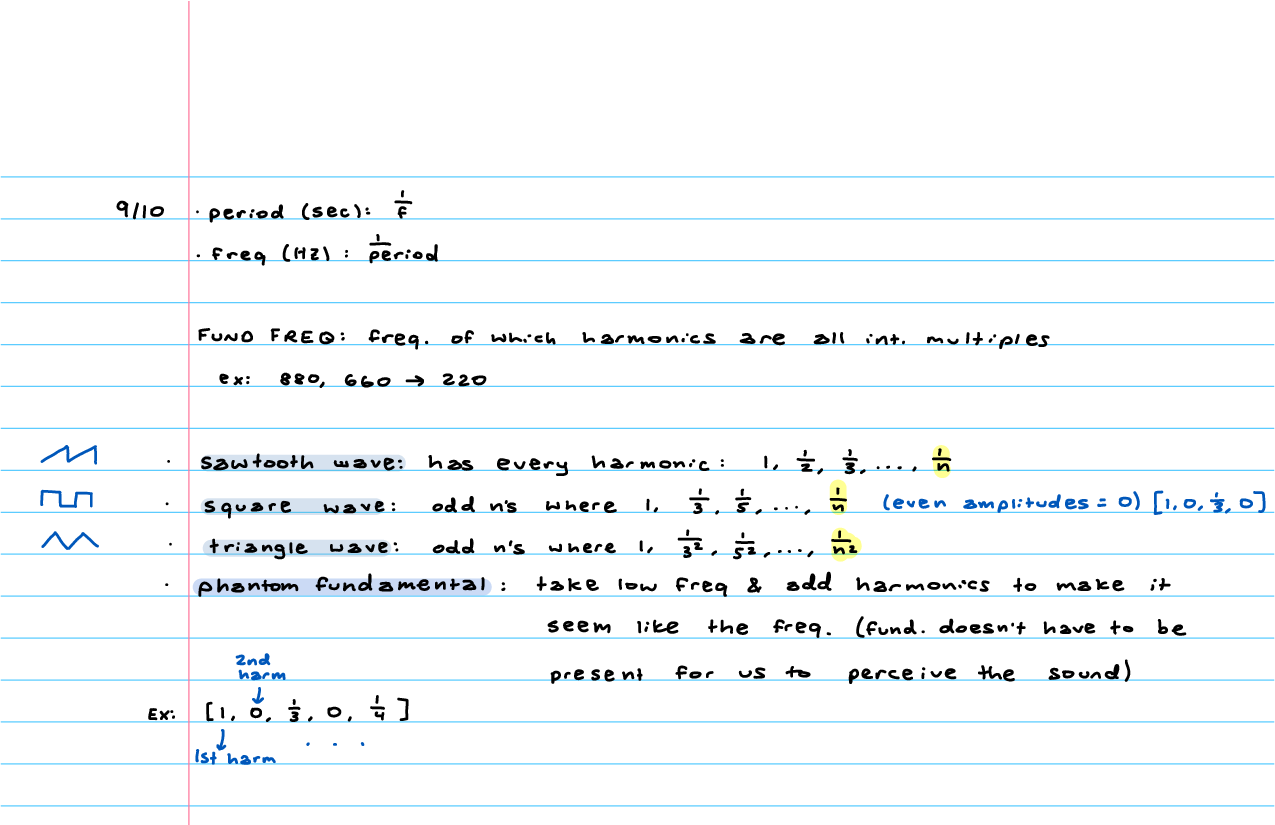 9/10 · period (sec): 1/f
· freq (Hz) : 1/period
FUND FREQ: freq. of which harmonics are all int. multiples
ex: 880, 660 → 220
· sawtooth wave: has every harmonic: 1, 1/2, 1/3, ..., 1/n
· square wave: odd n's where 1, 1/3, 1/5, ..., 1/n (even amplitudes = 0) [1, 0, 1/3, 0]
· triangle wave: odd n's where 1, 1/3², 1/5², ..., 1/n²
· phantom fundamental: take low freq & add harmonics to make it
seem like the freq. (fund. doesn't have to be
present for us to perceive the sound)
2nd
harm
Ex: [1, 0, 1/3, 0, 1/4]
1st harm . . .